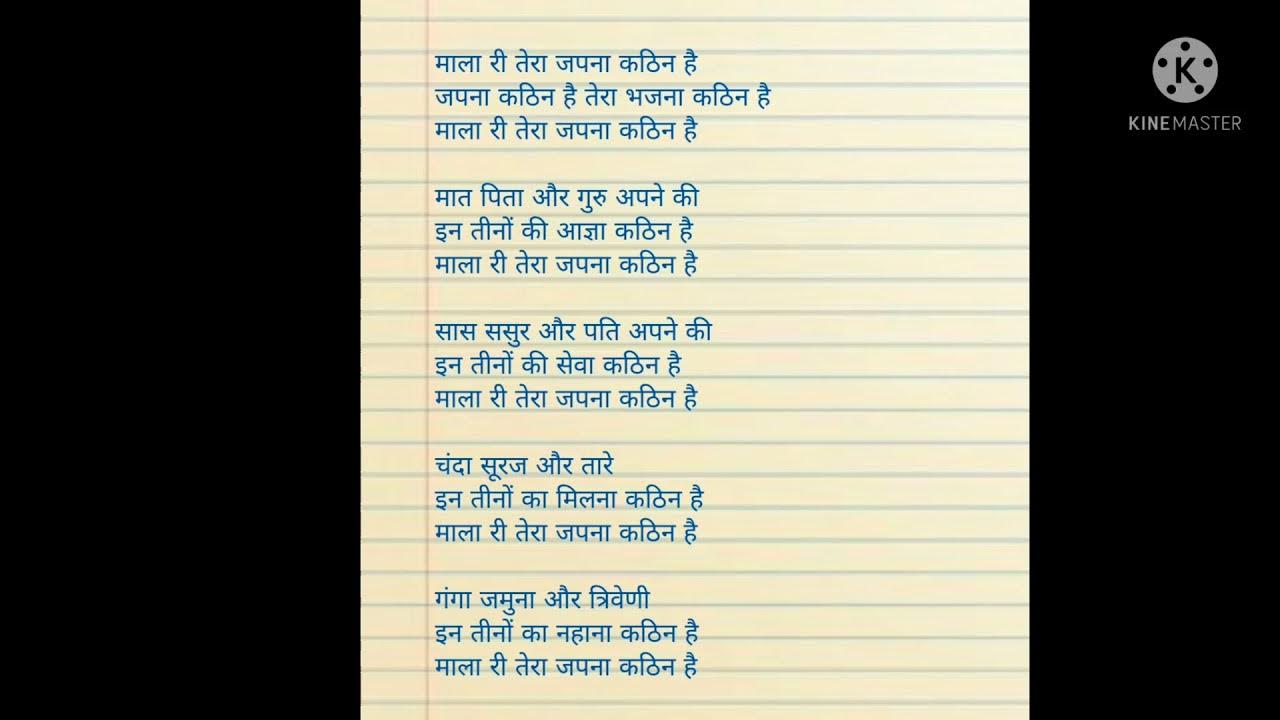 माला री तेरा जपना कठिन है
जपना कठिन है तेरा भजना कठिन है
माला री तेरा जपना कठिन है
मात पिता और गुरु अपने की
इन तीनों की आज्ञा कठिन है
माला री तेरा जपना कठिन है
सास ससुर और पति अपने की
इन तीनों की सेवा कठिन है
माला री तेरा जपना कठिन है
चंदा सूरज और तारे
इन तीनों का मिलना कठिन है
माला री तेरा जपना कठिन है
गंगा जमुना और त्रिवेणी
इन तीनों का नहाना कठिन है
माला री तेरा जपना कठिन है
K
KINEMASTER